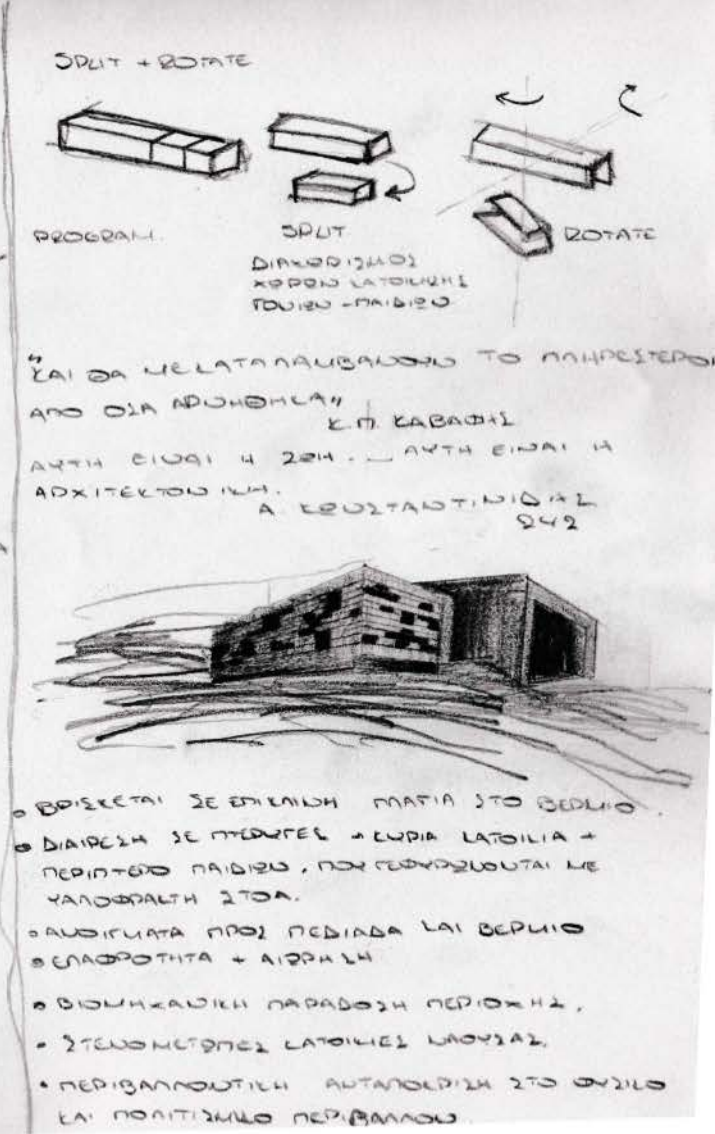 SPLIT + ROTATE
PROGRAM.
SPLIT
ROTATE
ΔΙΑΧΩΡΙΣΜΟΣ
ΧΩΡΩΝ ΚΑΤΟΙΚΗΣΗΣ
ΓΟΝΙΩΝ - ΠΑΙΔΙΩΝ
"ΚΑΙ ΘΑ ΜΕ ΚΑΤΑΛΑΜΒΑΝΟΥΝ ΤΟ ΠΛΗΡΕΣΤΕΡΟΝ
ΑΠΟ ΟΣΑ ΑΡΝΗΘΗΚΑ"
Κ.Π. ΚΑΒΑΦΗΣ
ΑΥΤΗ ΕΙΝΑΙ Η ΖΩΗ. _ ΑΥΤΗ ΕΙΝΑΙ Η
ΑΡΧΙΤΕΚΤΟΝΙΚΗ.
Α. ΚΩΝΣΤΑΝΤΙΝΙΔΗΣ
• ΒΡΙΣΚΕΤΑΙ ΣΕ ΕΠΙΚΛΙΝΗ ΠΛΑΓΙΑ ΣΤΟ ΒΕΡΜΙΟ.
• ΔΙΑΙΡΕΣΗ ΣΕ ΠΤΕΡΥΓΕΣ + ΚΥΡΙΑ ΚΑΤΟΙΚΙΑ +
ΠΕΡΙΠΤΕΡΟ ΠΑΙΔΙΩΝ, ΠΟΥ ΓΕΦΥΡΩΝΟΝΤΑΙ ΜΕ
ΥΑΛΟΦΡΑΚΤΗ ΣΤΟΑ.
• ΑΝΟΙΓΜΑΤΑ ΠΡΟΣ ΠΕΔΙΑΔΑ ΚΑΙ ΒΕΡΜΙΟ
• ΕΛΑΦΡΟΤΗΤΑ + ΑΙΩΡΗΣΗ
• ΒΙΟΜΗΧΑΝΙΚΗ ΠΑΡΑΔΟΣΗ ΠΕΡΙΟΧΗΣ.
• ΣΤΕΝΟΜΕΤΩΠΕΣ ΚΑΤΟΙΚΙΕΣ ΝΑΟΥΣΑΣ.
• ΠΕΡΙΒΑΛΛΟΝΤΙΚΗ ΑΝΤΑΠΟΚΡΙΣΗ ΣΤΟ ΦΥΣΙΚΟ
ΚΑΙ ΠΟΛΙΤΙΣΜΙΚΟ ΠΕΡΙΒΑΛΛΟΝ.